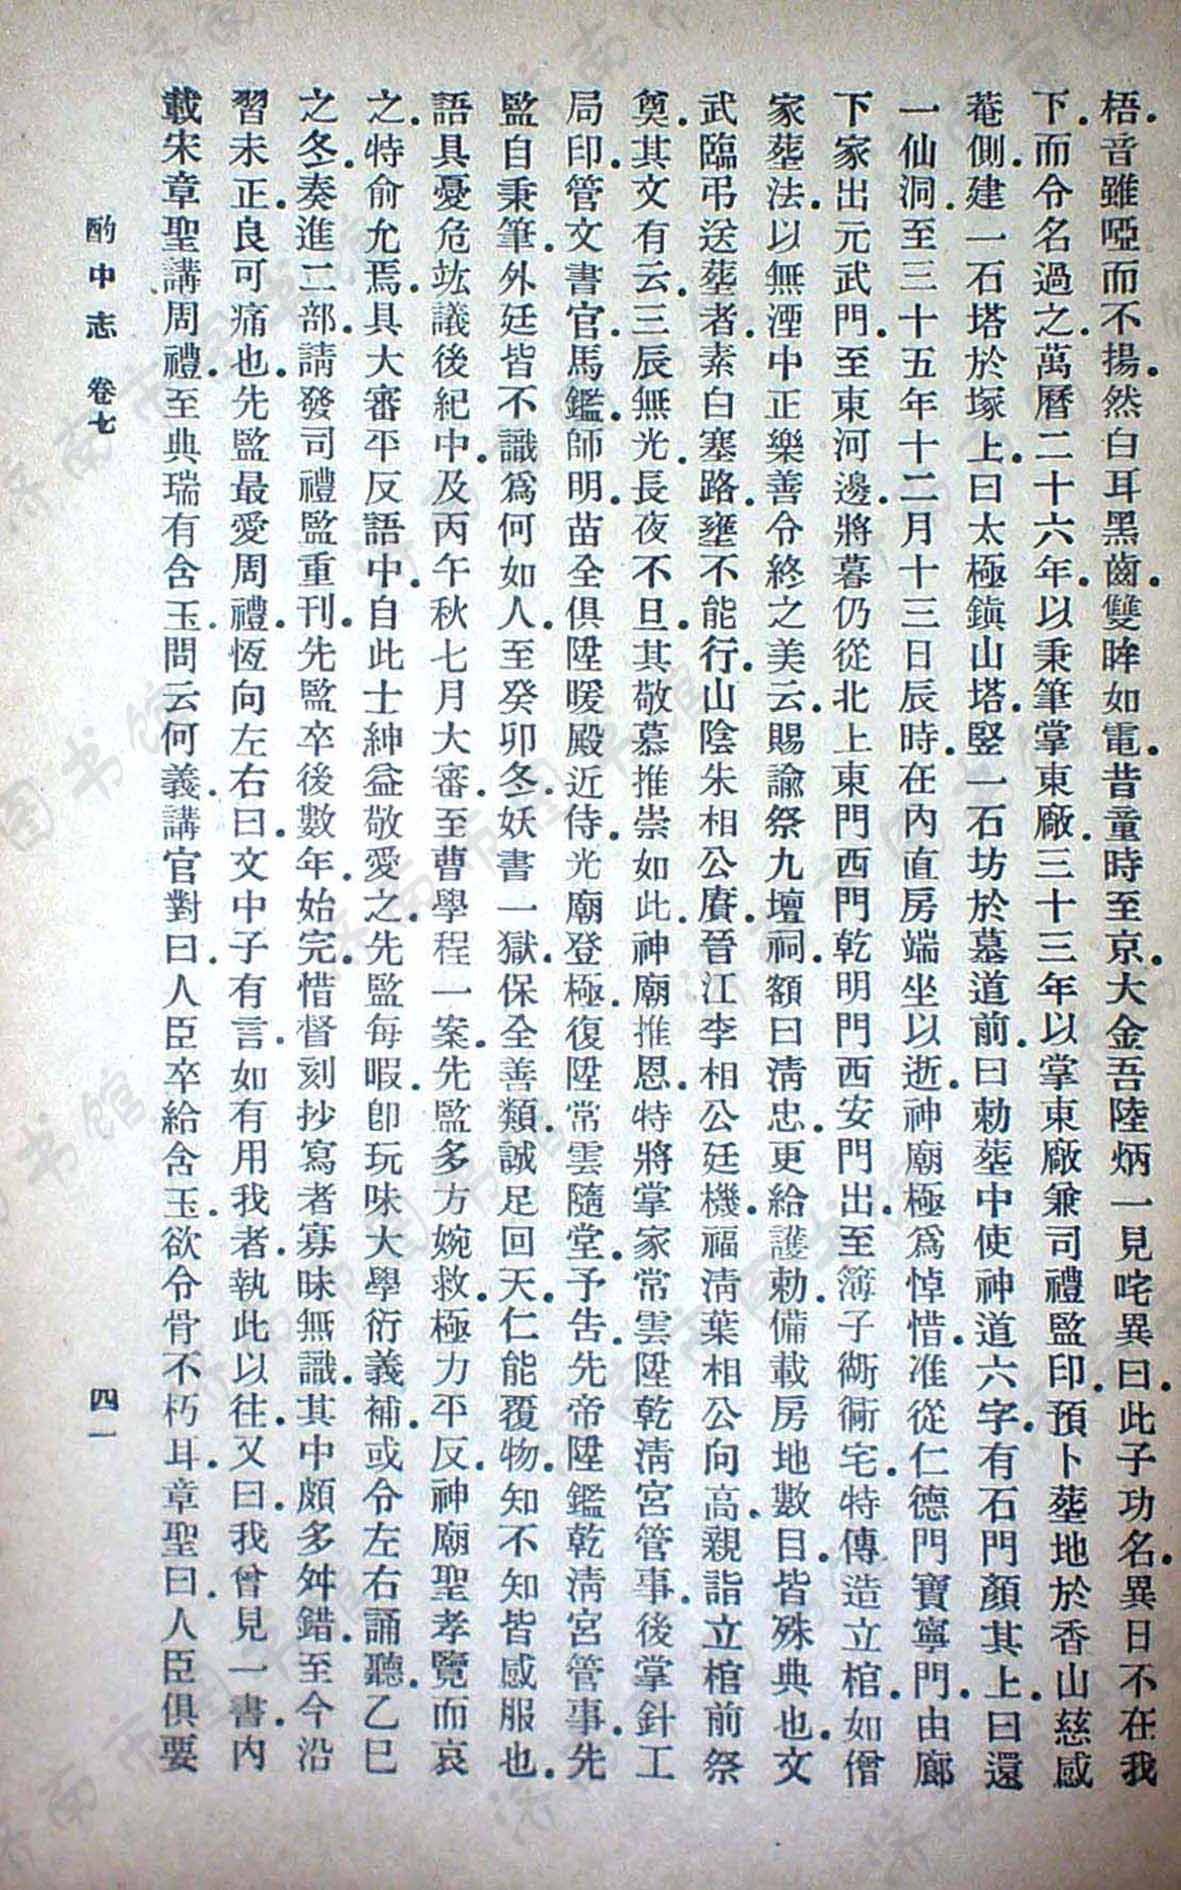 梧音雖啞而不揚然白耳黑齒雙眸如電昔童時至京大金吾陸炳一見咤異曰此子功名異日不在我
下而令名過之萬曆二十六年以秉筆掌東廠三十三年以掌東廠兼司禮監印預卜塟地於香山慈感
菴側建一石塔於塚上曰太極鎮山塔竪一石坊於墓道前曰勅塟中使神道六字有石門顏其上曰還
一仙洞至三十五年十二月十三日辰時在內直房端坐以逝神廟極爲悼惜准從仁德門寶寧門由廊
下家出元武門至東河邊將暮仍從北上東門西門乾明門西安門出至簿子衚衕宅特傳造立棺如僧
家塟法以無湮中正樂善令終之美云賜諭祭九壇祠額曰淸忠更給護勅備載房地數目皆殊典也文
武臨弔送塟者素白塞路壅不能行山陰朱相公賡晉江李相公廷機福淸葉相公向高親詣立棺前祭
奠其文有云三辰無光長夜不旦其敬慕推崇如此神廟推恩特將掌家常雲陞乾淸宮管事後掌針工
局印管文書官馬鑑師明苗全俱陞暖殿近侍光廟登極復陞常雲隨堂予告先帝陞鑑乾淸宮管事先
監自秉筆外廷皆不識爲何如人至癸卯冬妖書一獄保全善類誠足回天仁能覆物知不知皆感服也
語具憂危竑議後紀中及丙午秋七月大審至曹學程一案先監多方婉救極力平反神廟聖孝覽而哀
之特俞允焉具大審平反語中自此士紳益敬愛之先監每暇卽玩味大學衍義補或令左右誦聽乙巳
之冬奏進二部請發司禮監重刊先監卒後數年始完惜督刻抄寫者寡昧無識其中頗多舛錯至今沿
習未正良可痛也先監最愛周禮恆向左右曰文中子有言如有用我者執此以往又曰我曾見一書內
載宋章聖講周禮至典瑞有含玉問云何義講官對曰人臣卒給含玉欲令骨不朽耳章聖曰人臣俱要
酌中志 卷七
四一
济南市图书馆